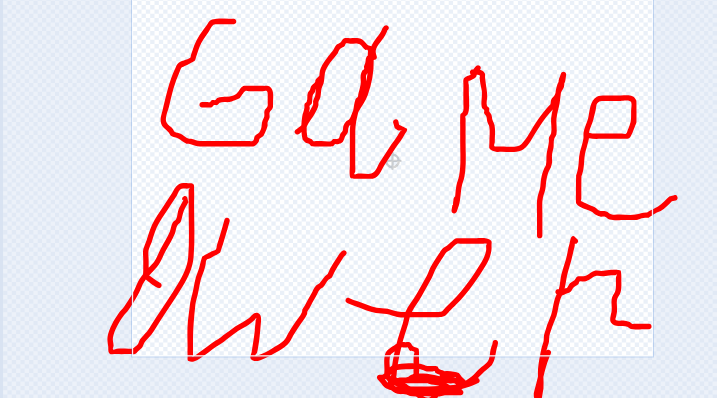 Game
over